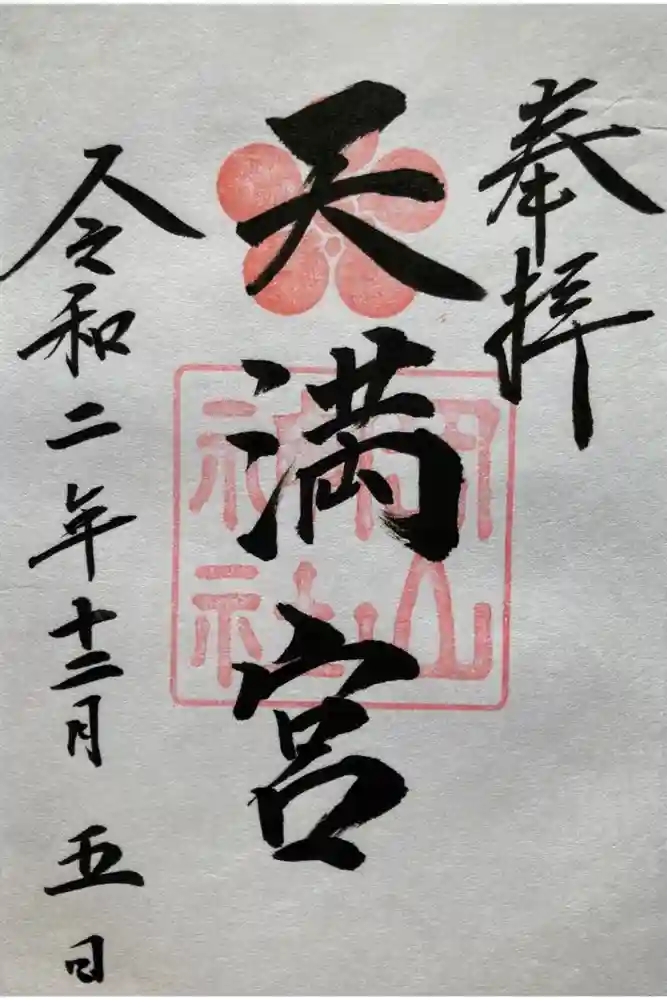 奉拝
天満宮
岡山
神社
令和二年十二月五日